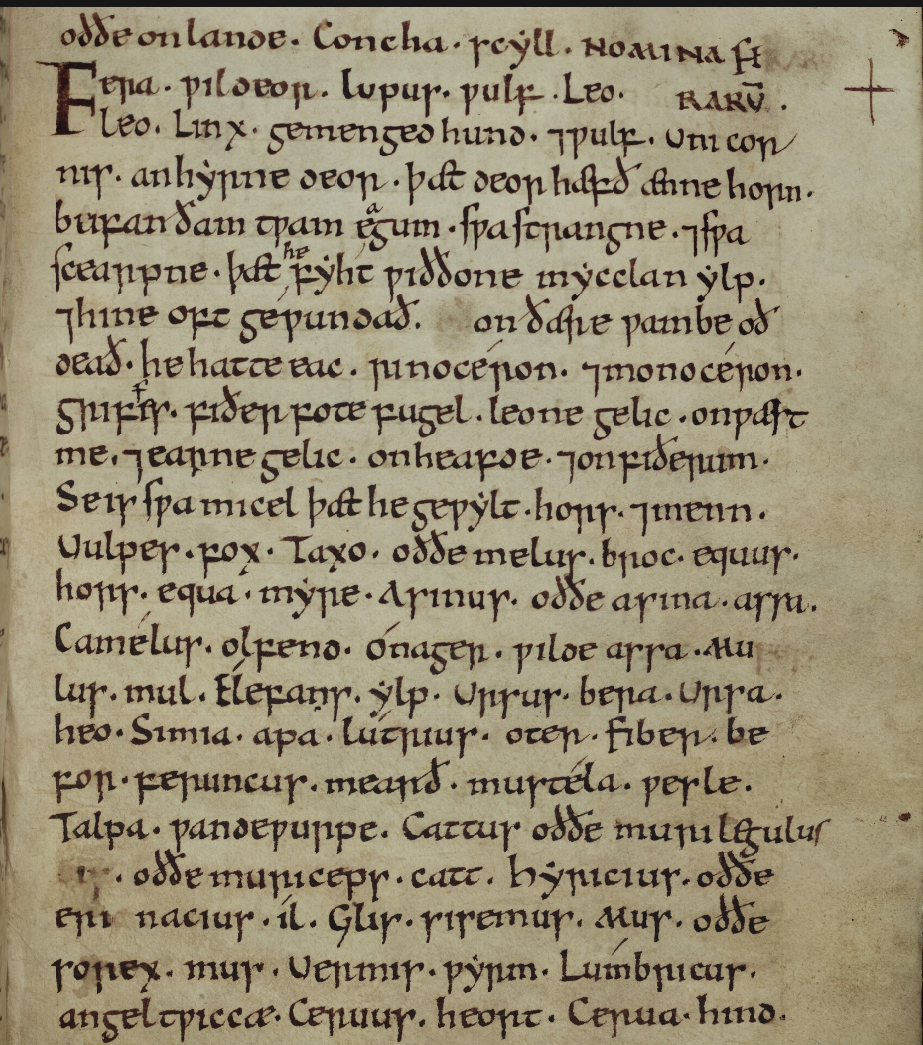 oððe on lande. Concha. scẏll. NOMINA FE
Fera. ƿildeor. lupus. ƿulf. Leo. RARŪ.
leo. Linx. gemenged hund. ⁊ƿulf. Unicor
nis. anhẏrne deor. þæt deor hæfð ænne horn.
bufan ðam tƿam eagum. sƿa strangne. ⁊sƿa
scearpne. þæt he fẏht ƿið ðone mẏcclan ẏlp.
⁊hine oft geƿundað. on ðære ƿambe oð
deað. he hatte eac. rinocéron. ⁊monocéron.
Griffes. fiðer fote fugel. leone gelic. on ƿæst
me. ⁊earne gelic. on heafde. ⁊on fiðerum.
Se is sƿa micel þæt he geƿẏlt. hors. ⁊menn.
Uulpes. fox. Taxo. oððe melus. broc. equus.
hors. equa. mẏre. Asinus. oððe asina. assa.
Camélus. olfend. ónager. ƿilde assa. Mu
lus. mul. Élefans. ẏlp. Ursus. bera. Ursa.
heo. Simia. apa. lútrius. oter. fiber. be
for. feruncus. mearð. mustéla. ƿesle.
Talpa. ƿandeƿurpe. Cattus oððe murilegulus
. oððe muriceps. catt. hẏricius. oððe
eri nacius. il. Glis. sisemus. Mus. oððe
sorex. mus. Uermis. ƿẏrm. Lúmbricus.
angeltƿiccæ. Ceruus. heort. Cerua. hind.